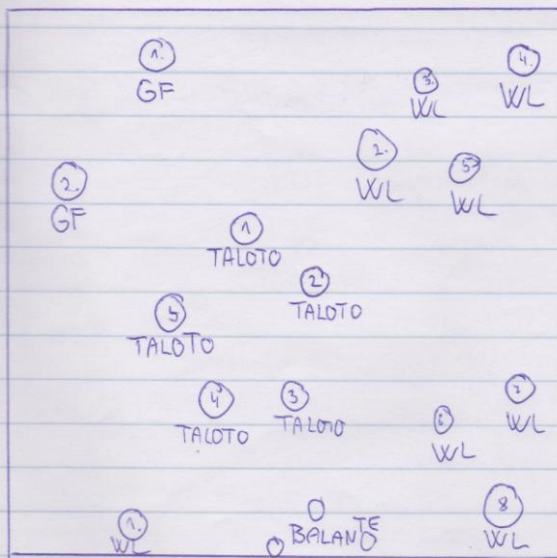 1.
GF
3.
WL
4.
WL
2.
WL
5
WL
2.
GF
1
TALOTO
2
TALOTO
5
TALOTO
4
TALOTO
3
TALOTO
6
WL
7
WL
1.
WL
BALANTE
8
WL